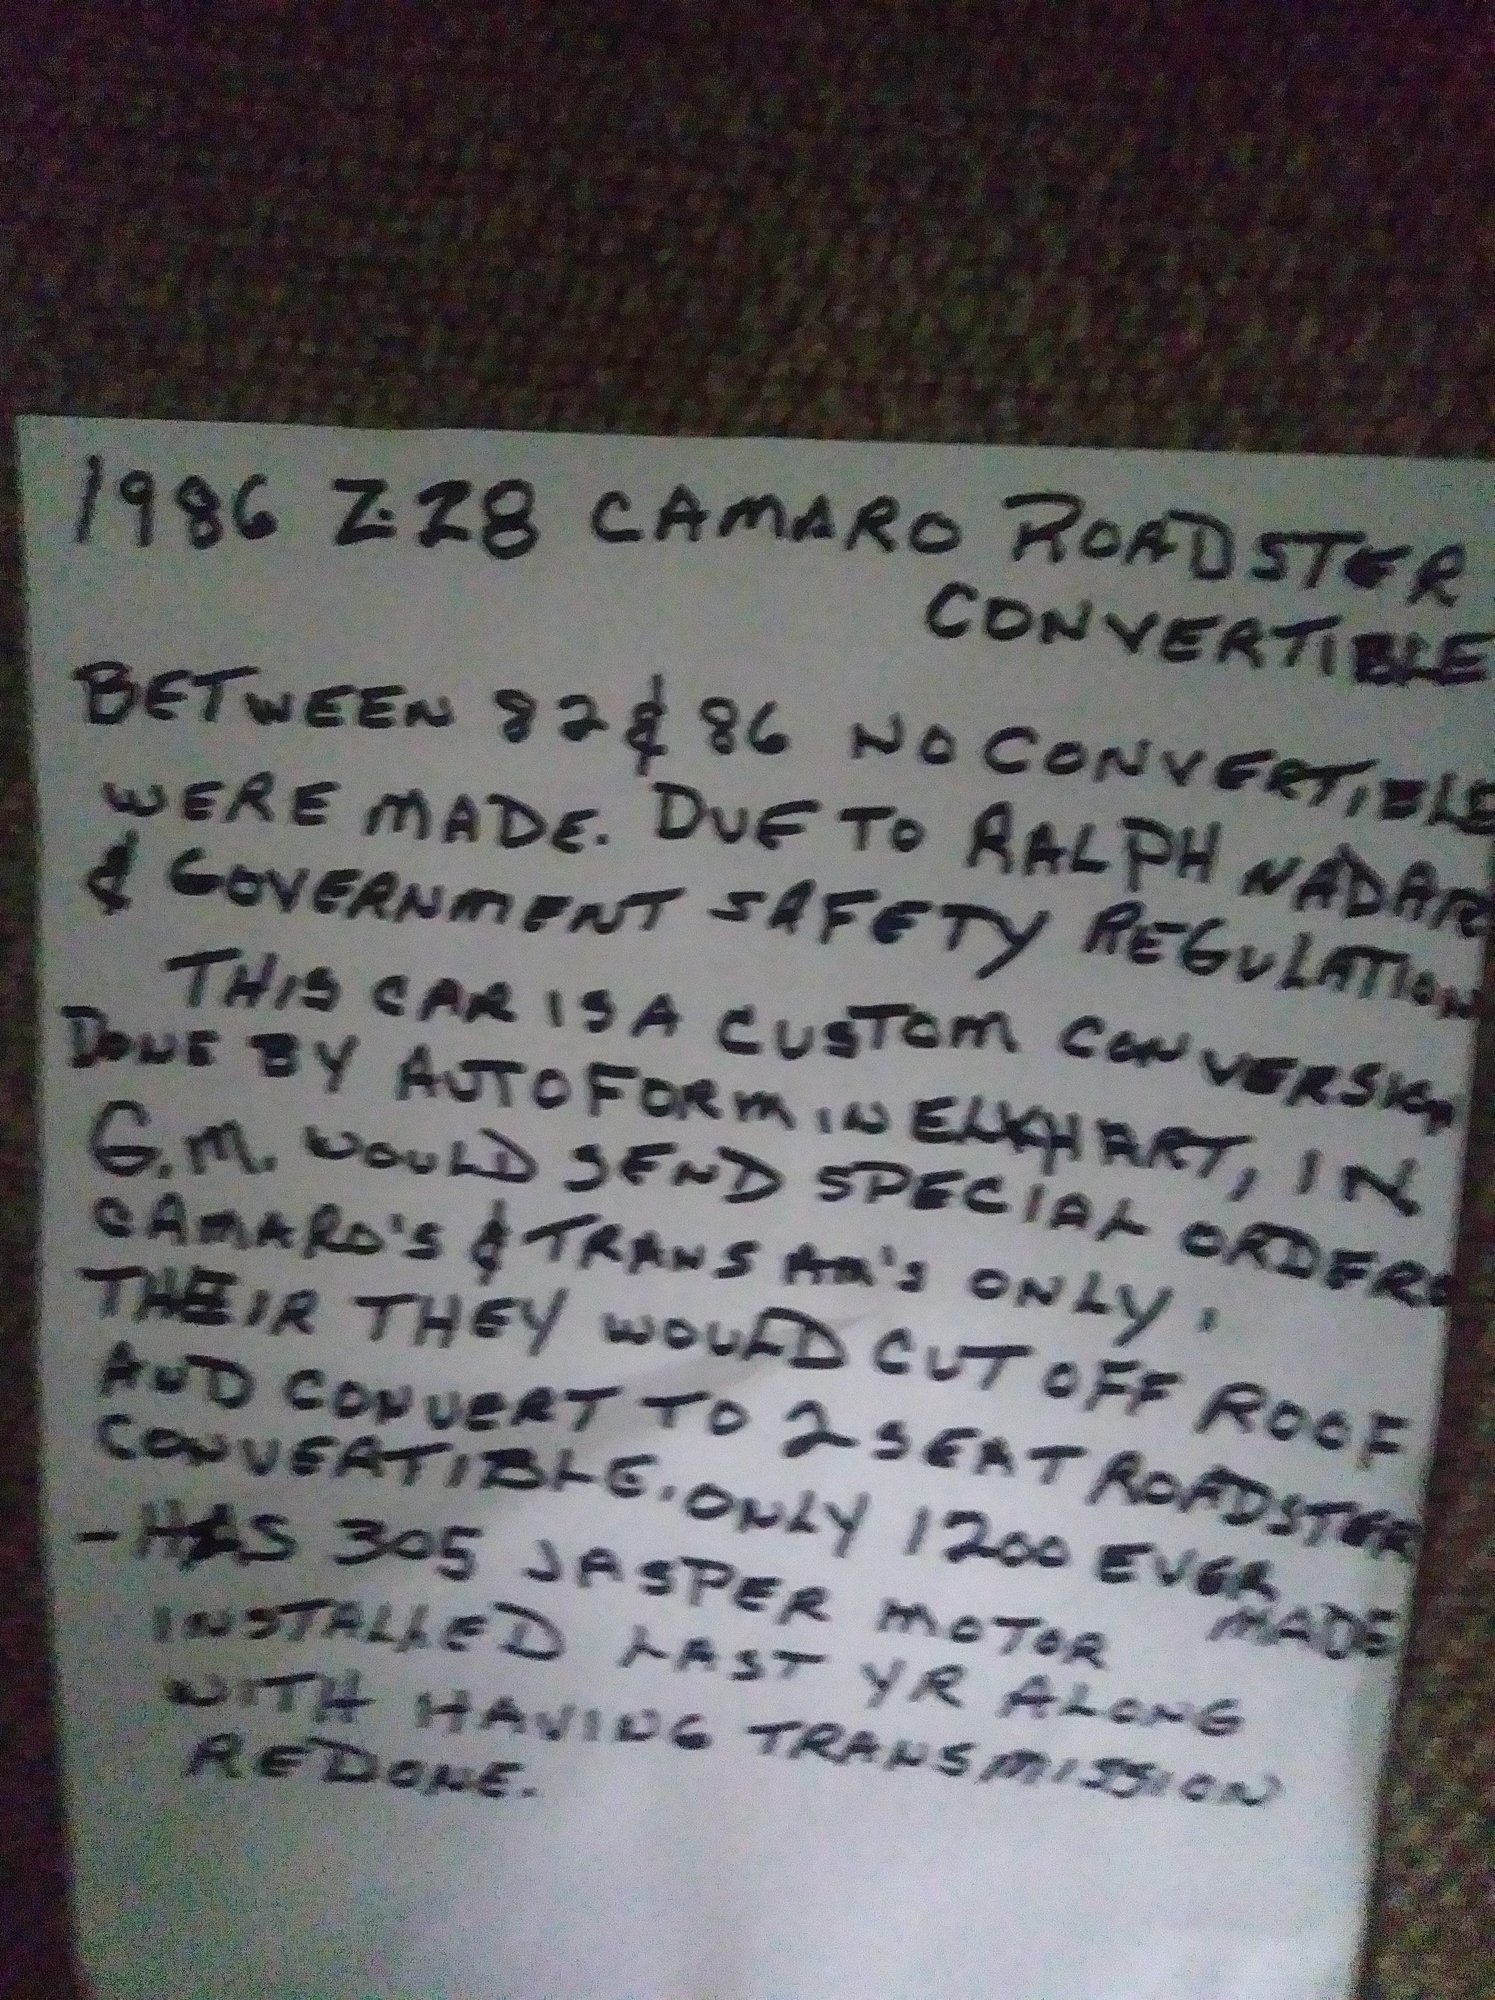 1986 Z-28 CAMARO ROADSTER
CONVERTIBLE
BETWEEN 82 & 86 NO CONVERTIBLE
WERE MADE. DUE TO RALPH NADAR
& GOVERNMENT SAFETY REGULATION
THIS CAR IS A CUSTOM CONVERSION
DONE BY AUTOFORM IN ELKHART, IN
G.M. WOULD SEND SPECIAL ORDERS
CAMARO'S & TRANS AM'S ONLY.
THEIR THEY WOULD CUT OFF ROOF
AND CONVERT TO 2 SEAT ROADSTER
CONVERTIBLE. ONLY 1200 EVER MADE
- HAS 305 JASPER MOTOR
INSTALLED LAST YR ALONG
WITH HAVING TRANSMISSION
REDONE.